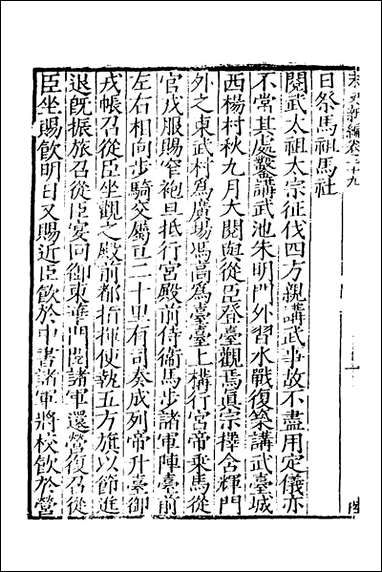 宋史新編卷三十九
日祭馬祖馬社
閱武太祖太宗征伐四方親講武事故不盡用定儀亦
不常其處鑿講武池朱明門外習水戰復築講武臺城
西楊村秋九月大閱與從臣登臺觀焉眞宗擇含輝門
外之東武村爲廣場馮高爲臺臺上構行宮帝乘馬從
官戎服賜窄袍且抵行宮殿前侍衛馬步諸軍陣臺前
左右相向步騎交屬亘二十里有司奏成列帝升臺御
戎帳召從臣坐觀之殿前都指揮使執五方旗以節進
退旣振旅召從臣宴回御東華門閱諸軍還營復召從
臣坐賜飲明日又賜近臣飲於中書諸軍將校飲於營